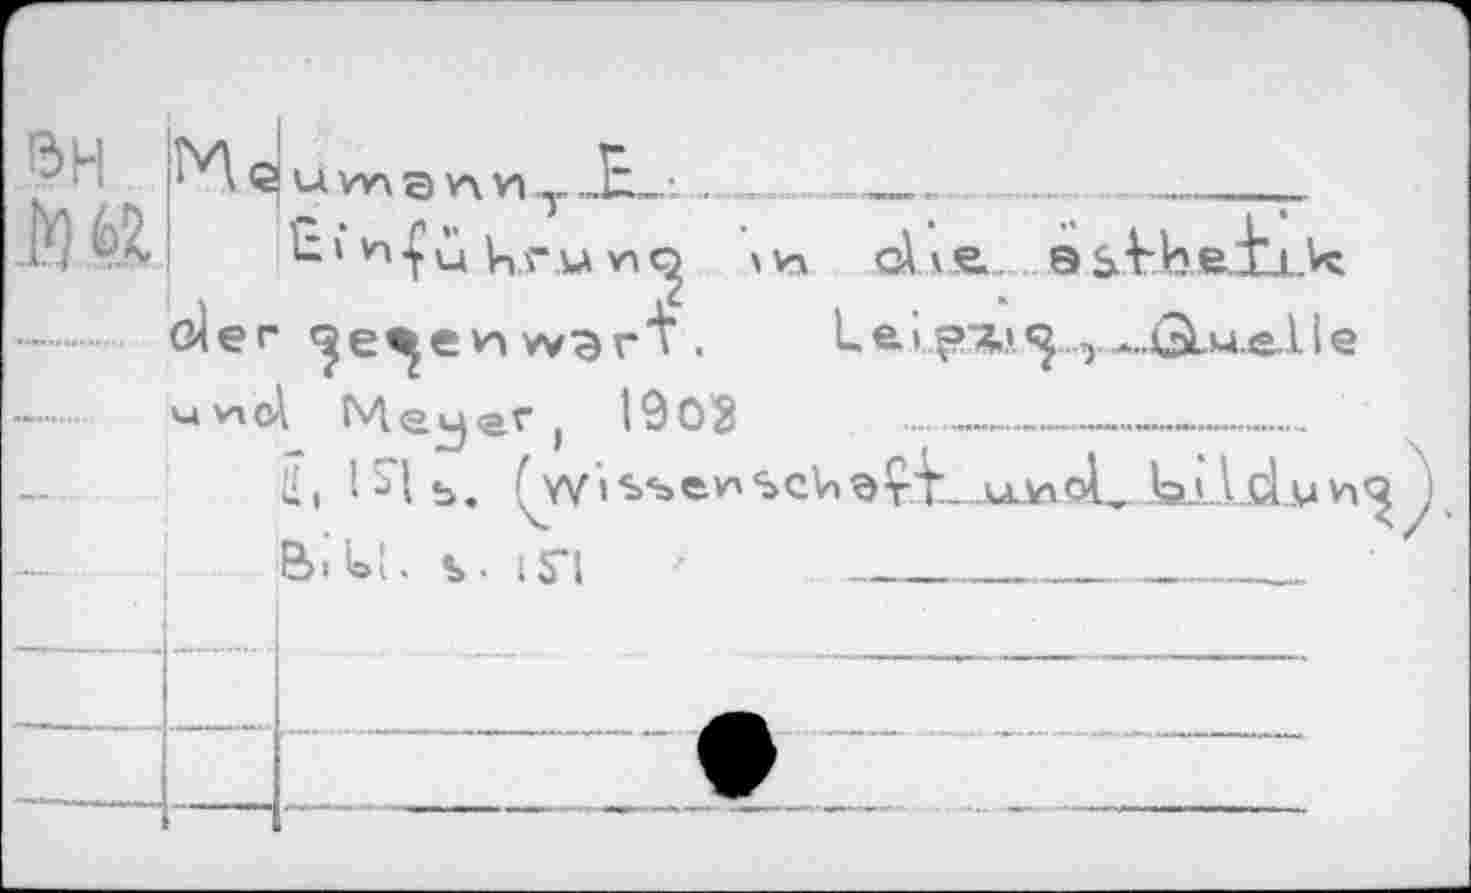 BH Meumann, E.
M62 Einführung in die ästhetik
der gegenwart. Leipzig, Quelle
und Meyer, 1908
II, 151 s. (Wissenschaft und bildung).
Bibl. s. 151